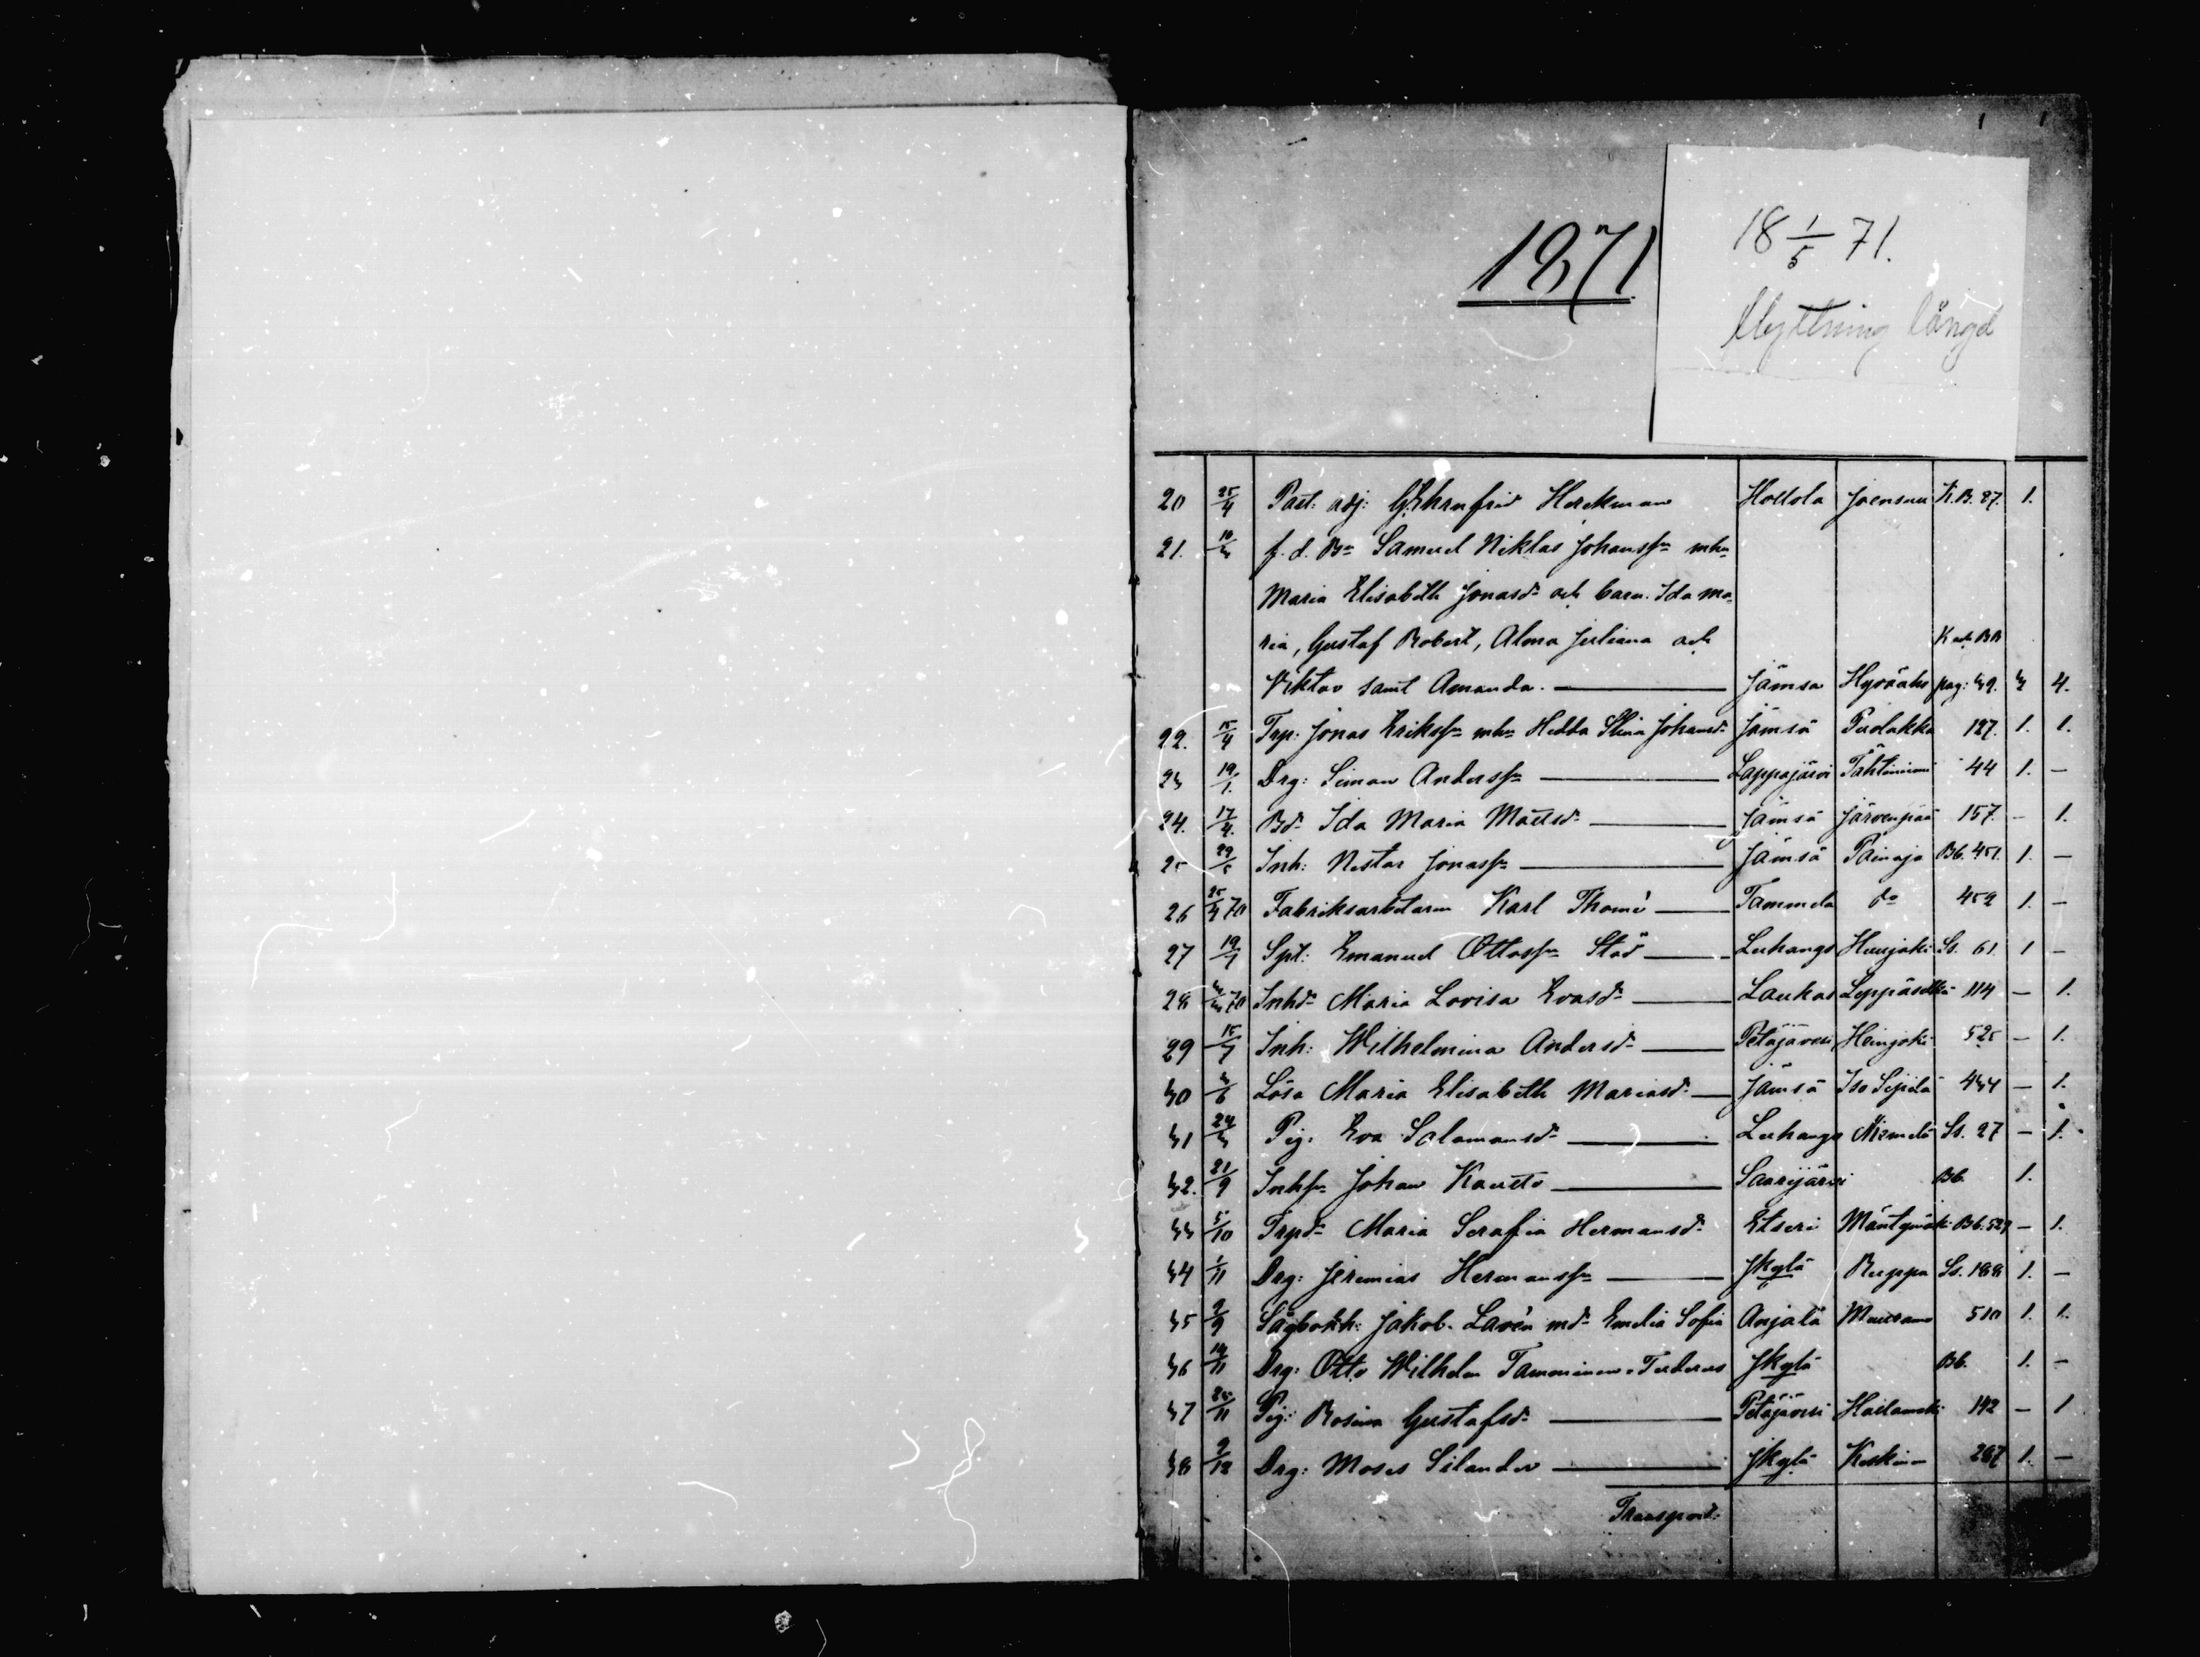 1 1
1871
18 1/5 71.
flyttning längd
20 25/4 Past: adj: G. Ehrnfrid Herckman Hollola Joensuu K.B. 27. 1.
21. 10/3 f. d. Bn Samuel Niklas Johanssn mhu
Maria Elisabeth Jonasdr och barn. Ida Ma-
ria, Gustaf Robert, Alma Juliana och K och BB
Viktor samt Amanda. — Jämsä pag: 39. 3 4.
22. 15/4 Trp: Jonas Erikssn mhu Hedda Stina Johansdr Jämsä Puolakka 127. 1. 1.
23 19/1. Drg: Simon Anderssn — Lappajärvi Tähtiniemi 44 1. —
24. 17/4. Bdr Ida Maria Mattsdr — Jämsä Järvenpää 157 — 1.
25 29/5 Inh: Nestor Jonassn — Jämsä Päinaja Bb. 451. 1. —
26 25/4 70 Fabriksarbetaren Karl Thomé — Tammela do 452 1. —
27 19/7 Spt: Emanuel Ottossn Stöd — Luhango Huujoki Ss. 61 1 —
28 3/3 70 Inhdr Maria Lovisa Evasdr — Laukas Leppäselkä 114 — 1.
29 15/7 Inh: Wilhelmina Andersdr — Petäjävesi Heinjoki 525 — 1.
30 3/6 Lösa Maria Elisabeth Mariasdr — Jämsä Iso Sipilä 434 — 1.
31 24/3 Pig: Eva Salomonsdr — Luhango Niemelä Ss. 27 — 1.
32. 21/9 Inhsn Johan Kausto — Saarijärvi Bb. 1.
33 5/10 Trpdr Maria Serafia Hermansdr Etseri Mäntymäki Bb. 529 — 1.
34 1/11 Drg: Jeremias Hermanssn — Jkylä Ruppa Ss. 188 1. —
35 2/9 Sågbokh: Jakob Lavén md Emelia Sofia Anjala Muurame 510 1. 1.
36 14/11 Drg: Otto Wilhelm Tamminen Tuderus Jkylä Bb. 1. —
37 25/11 Pig: Rosina Gustafsdr — Petäjävesi 142 — 1
38 9/12 Drg: Moses Silander — Jkylä Keskinen 267 1. —
Transport: